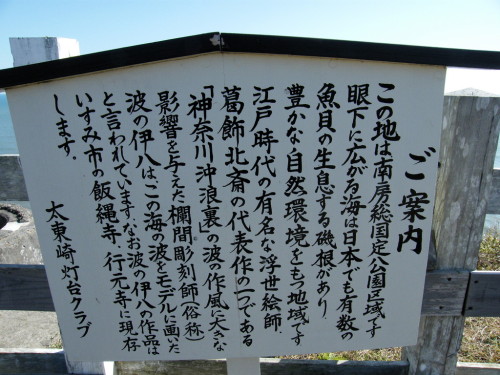 ご案内
この地は南房総国定公園区域です
眼下に広がる海は日本でも有数の
魚貝の生息する磯根があり、
豊かな自然環境をもつ地域です
江戸時代の有名な浮世絵師、
葛飾北斎の代表作の一つである
「神奈川沖浪裏」の波の作風に大きな
影響を与えた欄間彫刻師(俗称)
波の伊八は、この海の波をモデルに画いた
と言われています、なお波の伊八の作品は
いすみ市の飯縄寺、行元寺に現存
します。
太東崎灯台クラブ